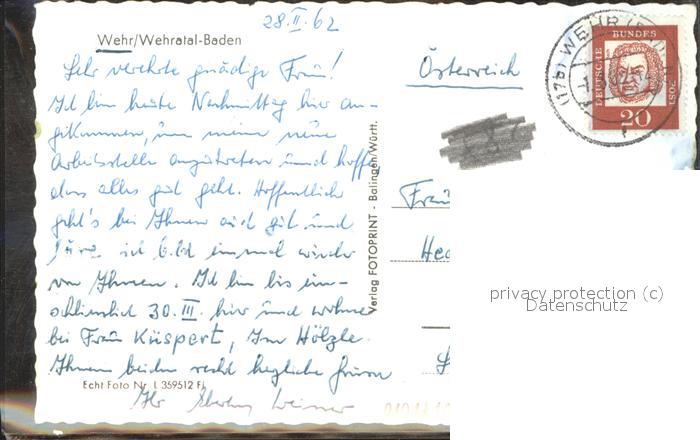 28.II.62
Wehr/Wehratal-Baden
Sehr verehrte gnädige Frau!
Ich bin heute Nachmittag hier an-
gekommen, um meine neue
Arbeitsstelle anzutreten und hoffe,
dass alles gut geht. Hoffentlich
geht's bei Ihnen auch gut und
höre ich bald einmal wieder
von Ihnen. Ich bin bis ein-
schliesslich 30.III. hier und wohne
bei Frau Küspert, Im Hölzle
Ihnen beiden recht herzliche Grüsse
Ihr
Echt Foto Nr. L 359512 Fi
Verlag FOTOPRINT - Balingen/Württ.
Österreich
(17b) WEHR
DEUTSCHE BUNDESPOST
20
Frau
privacy protection (c)
Datenschutz